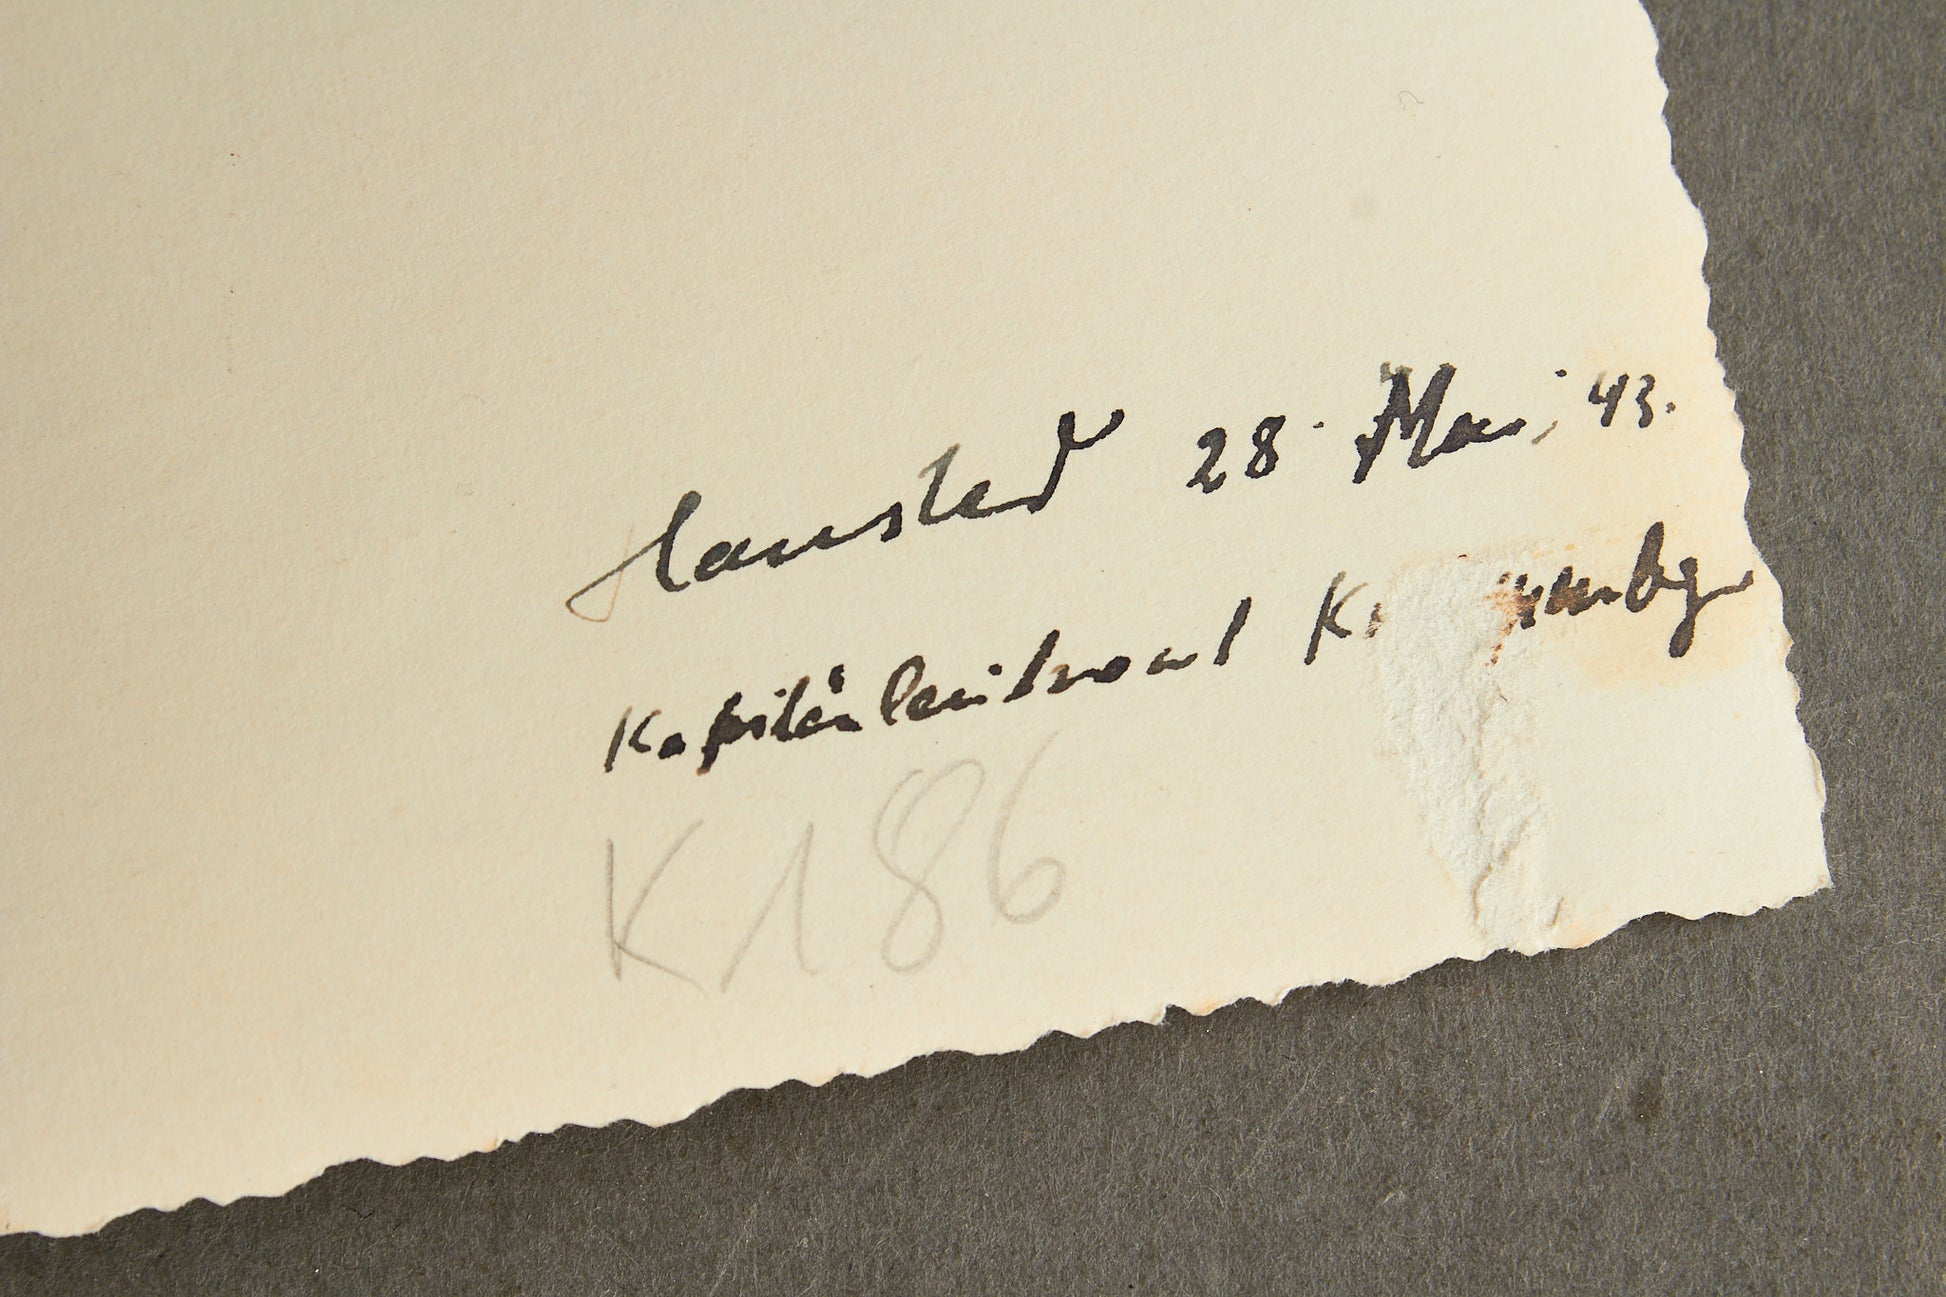 Hansted 28. Mai 43.
Kapitänleutnant
K186